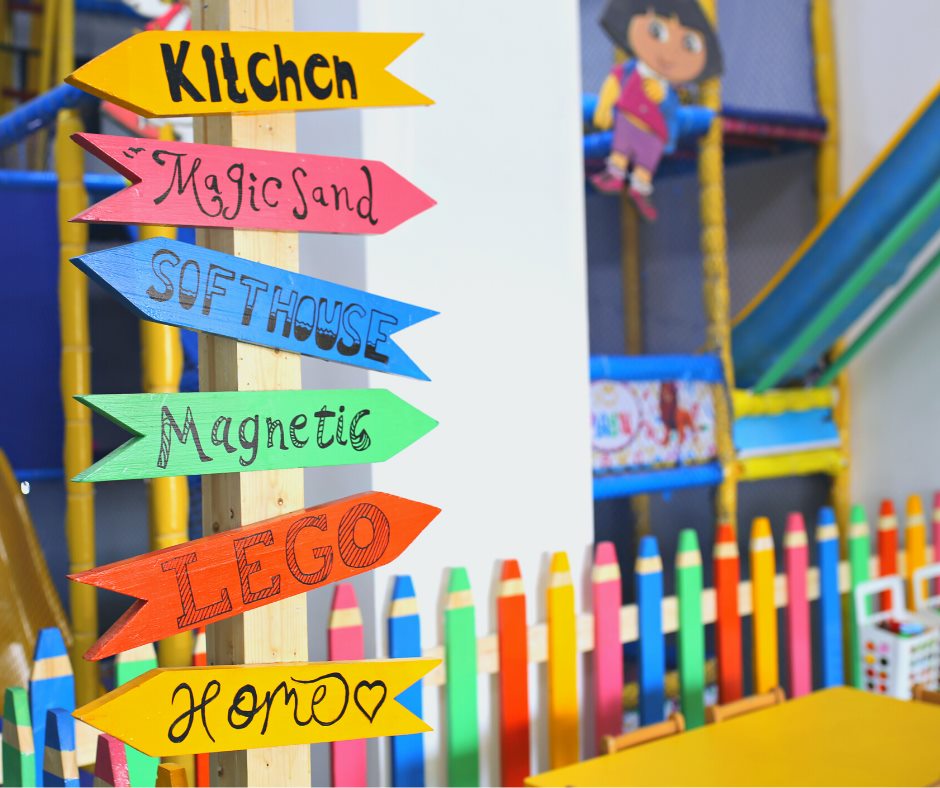 Kitchen
Magic Sand
SOFTHOUSE
Magnetic
LEGO
Home